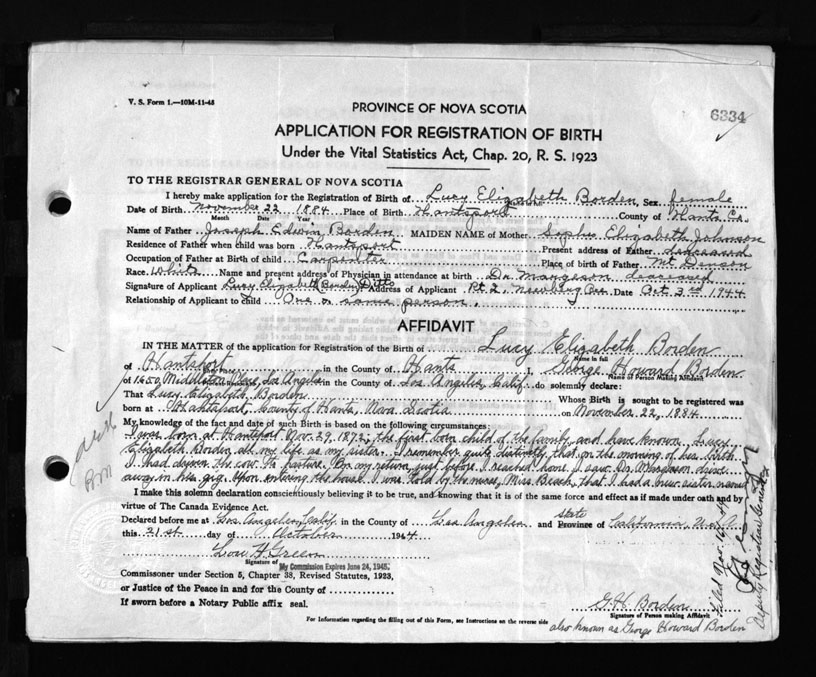 V. S. Form 1.—10M-11-43
6334
PROVINCE OF NOVA SCOTIA
APPLICATION FOR REGISTRATION OF BIRTH
Under the Vital Statistics Act, Chap. 20, R. S. 1923
TO THE REGISTRAR GENERAL OF NOVA SCOTIA
I hereby make application for the Registration of Birth of Lucy Elizabeth Borden, Sex female
Date of Birth November 22 1884 Place of Birth Hantsport County of Hants Co.
Month Date Year
Name of Father Joseph Edwin Borden MAIDEN NAME of Mother Sophia Elizabeth Johnson
Residence of Father when child was born Hantsport Present address of Father deceased
Occupation of Father at Birth of child Carpenter Place of birth of Father Mt Denson
Race White Name and present address of Physician in attendance at birth Dr. Margeson deceased
Signature of Applicant Lucy Elizabeth Borden Address of Applicant Date Oct 3rd 1944
Relationship of Applicant to child One or same person.
AFFIDAVIT
IN THE MATTER of the application for Registration of the Birth of Lucy Elizabeth Borden
Name in full
of Hantsport in the County of Hants I, George Howard Borden
Name of Person Making Affidavit
of 1650 Los Angeles in the County of Los Angeles, Calif. do solemnly declare:
That Lucy Elizabeth Borden Whose Birth is sought to be registered was
born at Hantsport, County of Hants, Nova Scotia on November 22, 1884.
My knowledge of the fact and date of such Birth is based on the following circumstances:
I was born at Hantsport Nov. 29, 1872, the first born child of the family, and have known Lucy
Elizabeth Borden all my life as my sister. I remember quite distinctly that on the morning of his birth
I had driven the cow to pasture. On my return, just before I reached home I saw Dr. Margeson drive
away in his gig. Upon entering the house I was told by the nurse, Miss Beach, that I had a new sister
I make this solemn declaration conscientiously believing it to be true, and knowing that it is of the same force and effect as if made under oath and by
virtue of The Canada Evidence Act.
Declared before me at Los Angeles, Calif. in the County of Los Angeles and state Province of California, U.S.A.
this 21st day of October 1944
Signature of My Commission Expires June 24, 1945.
Commissoner under Section 5, Chapter 38, Revised Statutes, 1923,
or Justice of the Peace in and for the County of
If sworn before a Notary Public affix seal.
G. H. Borden
Signature of Person making Affidavit
For Information regarding the filling out of this Form, see Instructions on the reverse side
also known as George Howard Borden
Deputy Registrar General